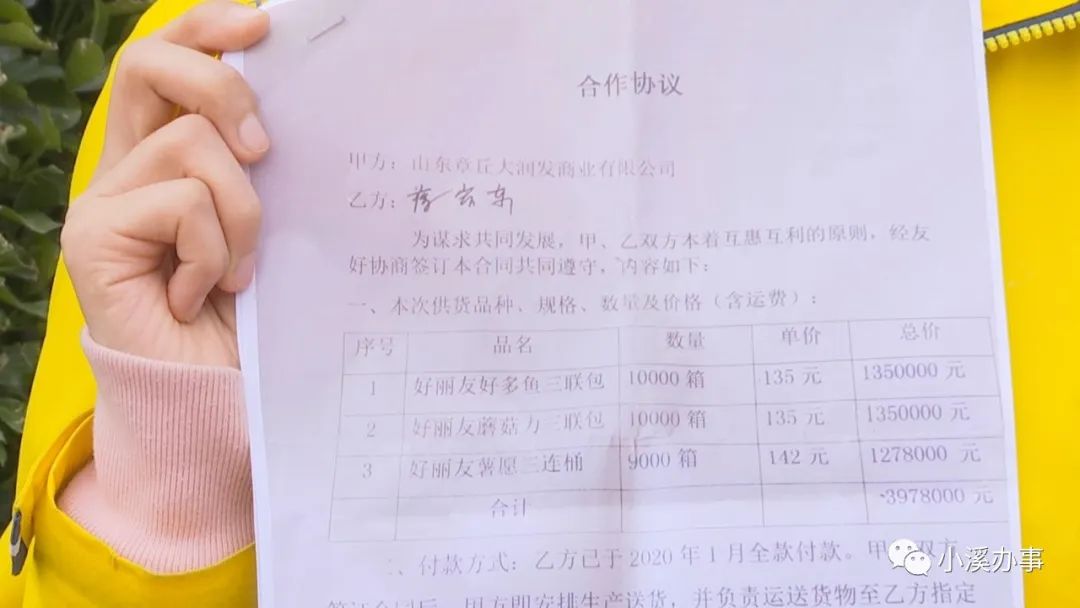 合作协议
甲方：山东章丘大润发商业有限公司
乙方：蒋宏东
为谋求共同发展，甲、乙双方本着互惠互利的原则，经友
好协商签订本合同共同遵守，内容如下：
一、本次供货品种、规格、数量及价格（含运费）：
序号 品名 数量 单价 总价
1 好丽友好多鱼三联包 10000 箱 135 元 1350000 元
2 好丽友蘑菇力三联包 10000 箱 135 元 1350000 元
3 好丽友薯愿三连桶 9000 箱 142 元 1278000 元
合计 3978000 元
二、付款方式：乙方已于 2020 年 1 月全款付款。甲 双方
签订合同后，甲方即安排生产送货，并负责运送货物至乙方指定
小溪办事